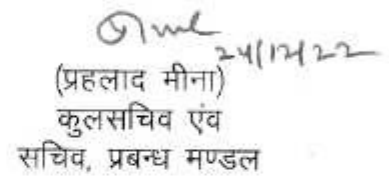 24/12/22
(प्रहलाद मीना)
कुलसचिव एंव
सचिव, प्रबन्ध मण्डल